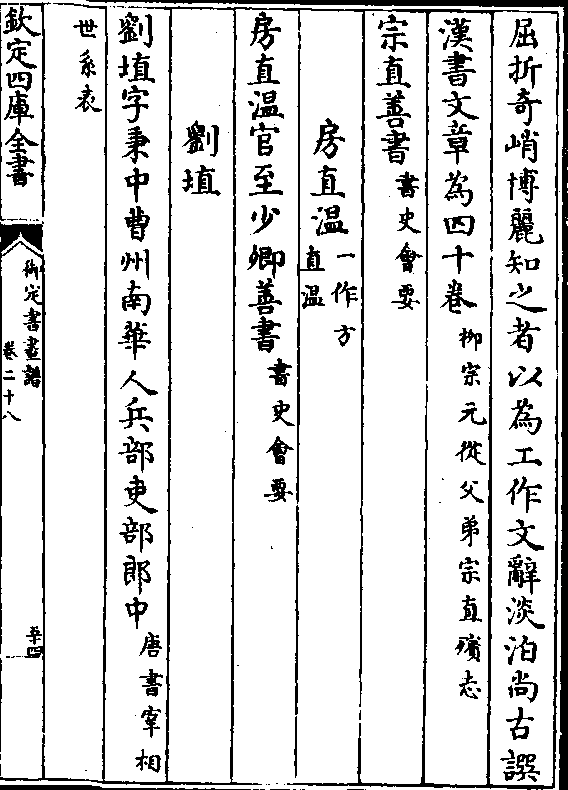 屈折奇峭博麗知之者以為工作文辭淡泊尚古譔
漢書文章為四十卷柳宗元從父弟宗直殯志
宗直善書書史會要
房直温一作方直温
房直温官至少卿善書書史會要
劉埴
劉埴字秉中曹州南華人兵部吏部郎中唐書宰相
世系表
欽定四庫全書
御定書畫譜
卷二十八